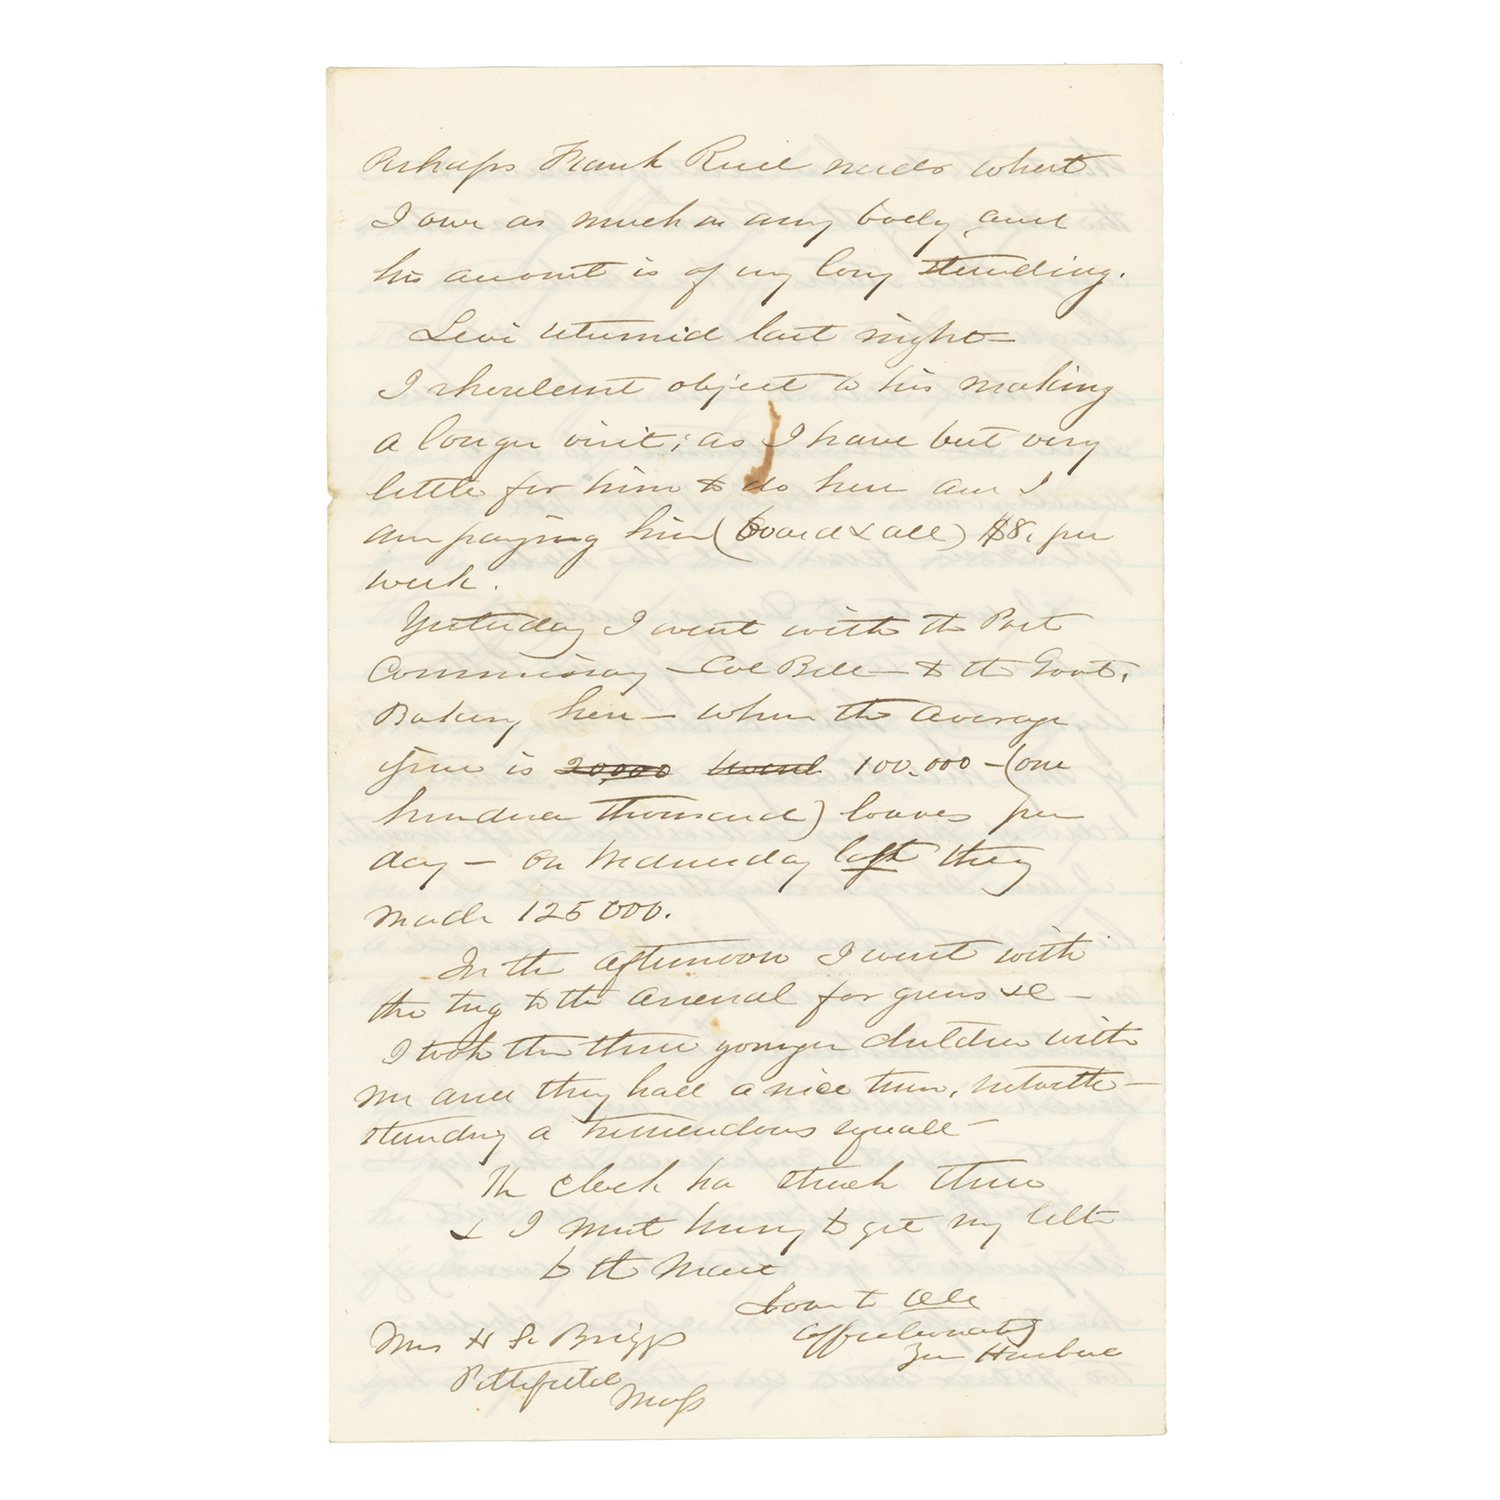 Perhaps Frank Reed needs what
I owe as much as any body and
his amount is of very long standing.
Levi returned last night—
I shouldent object to his making
a longer visit; as I have but very
little for him to do here and I
am paying him (board & all) $8. per
week.
Yesterday I went with the Post
Commissary — Col Bell — to the Govt.
Bakery here — where the average
is 20,000 100.000 — (one
hundred thousand) loaves per
day — on Wednesday last they
made 125000.
In the afternoon I went with
the tug to the arsenal for guns &c —
I took the three younger children with
me and they had a nice time, notwith-
standing a tremendous squall —
The clock has struck three
& I must hurry to get my letter
to the Mail
Love to all
affectionately
Your Husband
Mrs H S. Briggs
Pittsfield
Mass